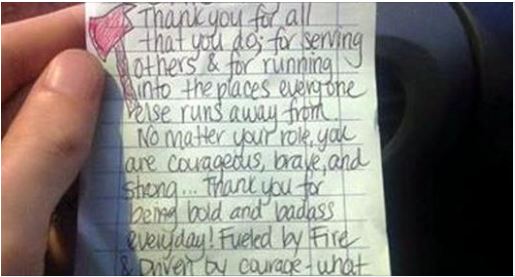 Thank you for all
that you do; for serving
others & for running
into the places everyone
else runs away from.
No matter your role, you
are courageous, brave, and
strong... Thank you for
being bold and badass
everyday! Fueled by Fire
& Driven by courage - what